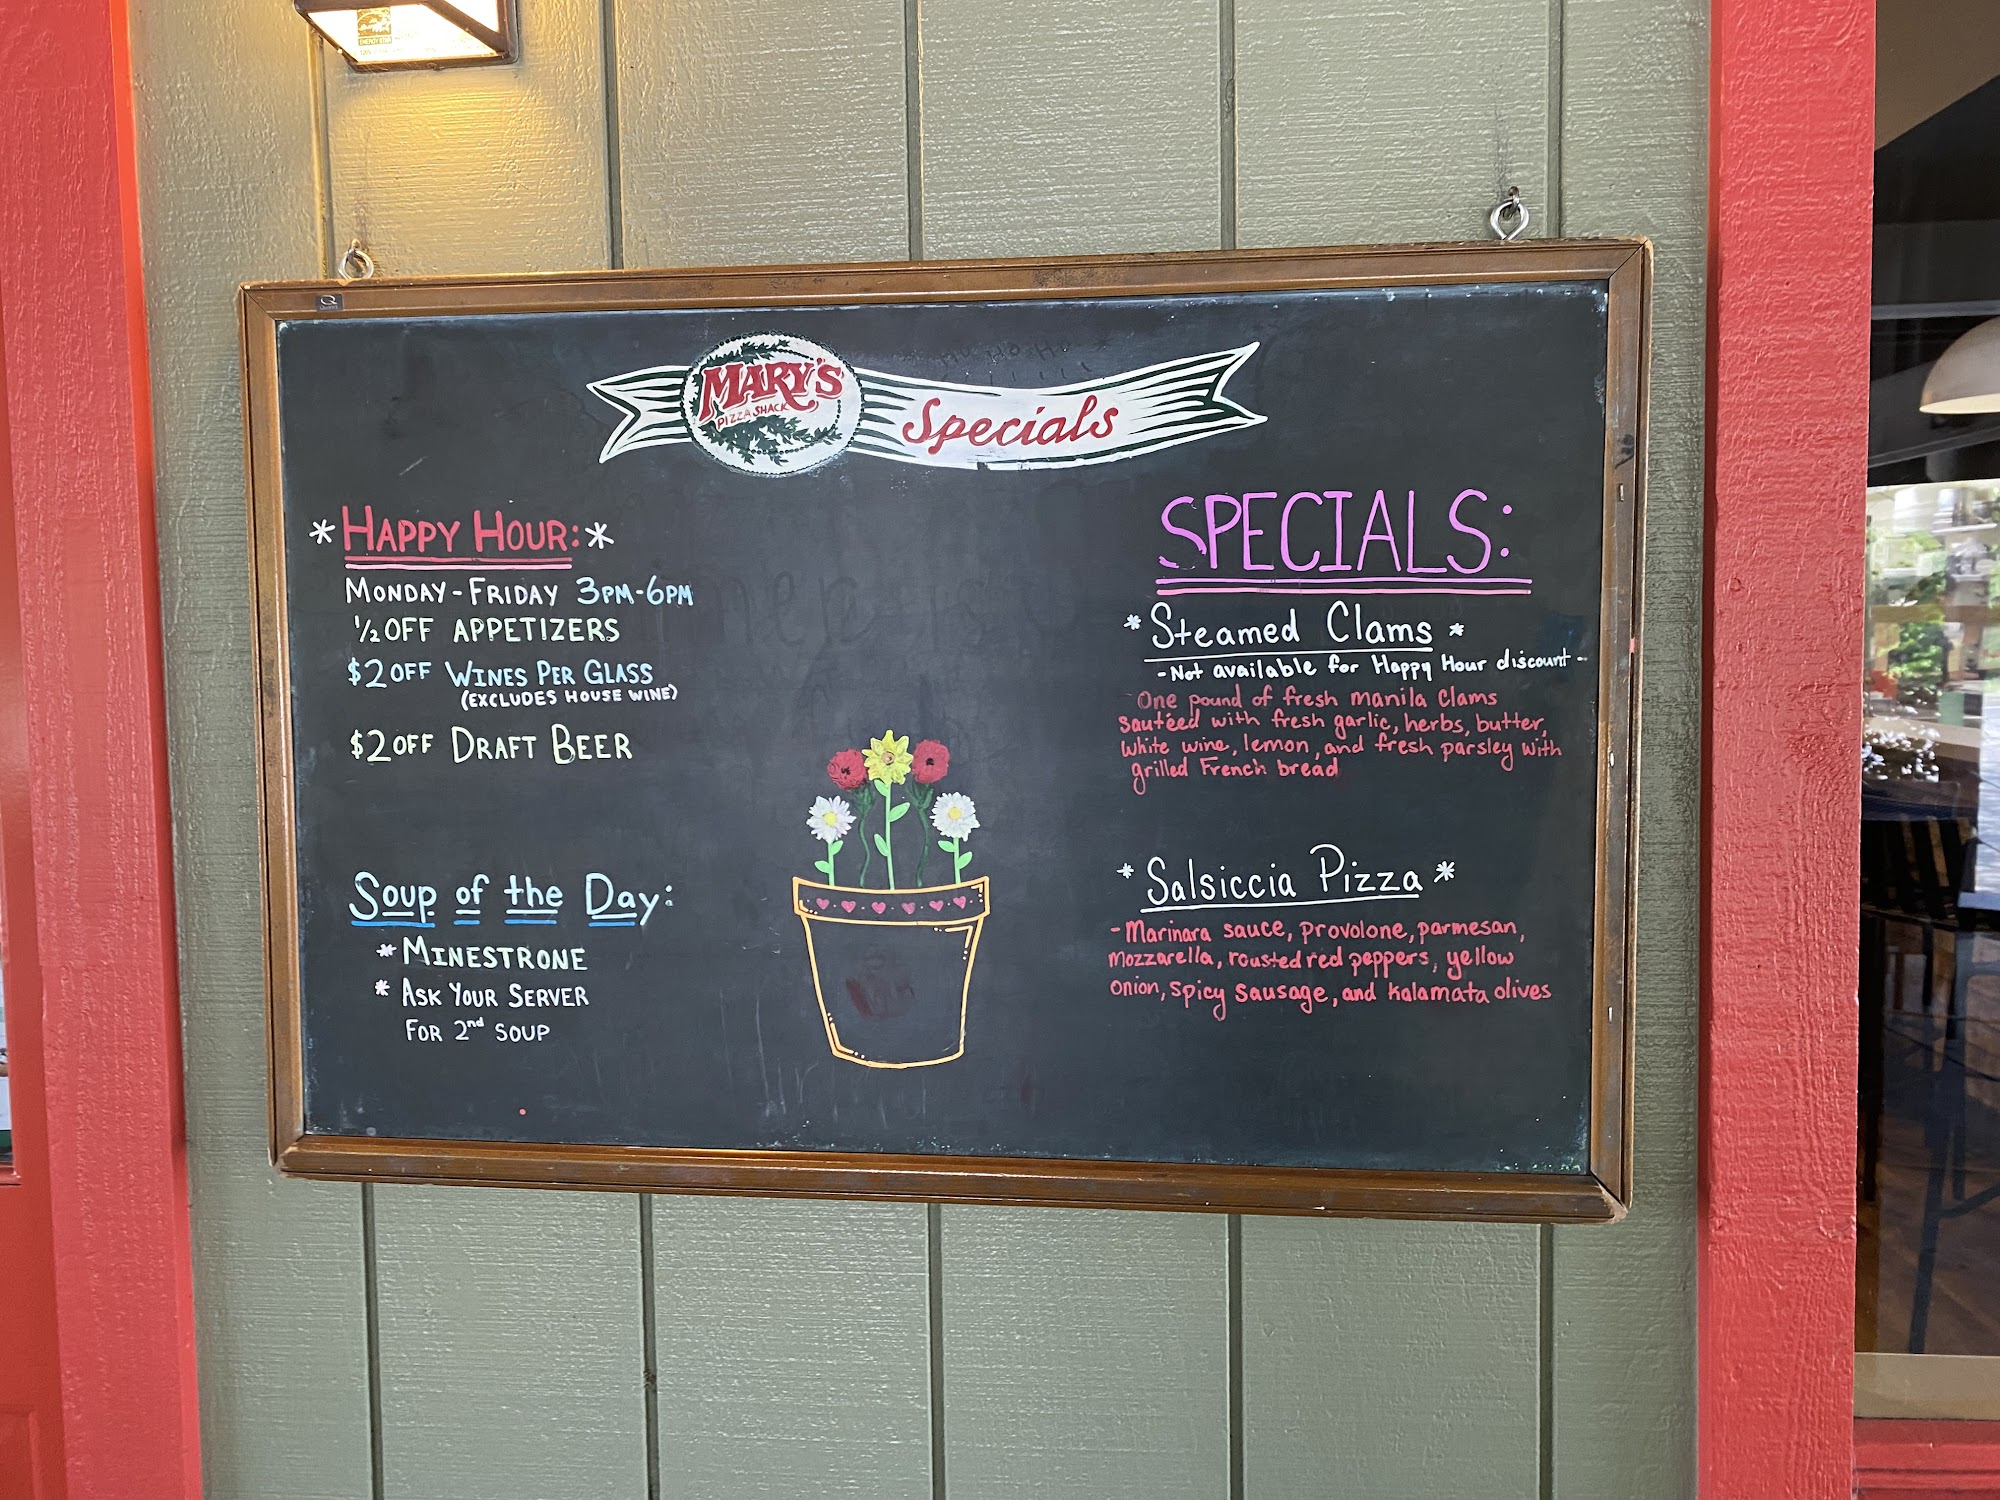 MARY'S
PIZZA SHACK
Specials
*HAPPY HOUR:*
MONDAY-FRIDAY 3PM-6PM
½ OFF APPETIZERS
$2 OFF WINES PER GLASS
(EXCLUDES HOUSE WINE)
$2 OFF DRAFT BEER
Soup of the Day:
* MINESTRONE
* ASK YOUR SERVER
FOR 2nd SOUP
SPECIALS:
* Steamed Clams *
- Not available for Happy Hour discount -
One pound of fresh manila clams
sautéed with fresh garlic, herbs, butter,
white wine, lemon, and fresh parsley with
grilled French bread
* Salsiccia Pizza *
- Marinara sauce, provolone, parmesan,
mozzarella, rousted red peppers, yellow
onion, spicy sausage, and kalamata olives